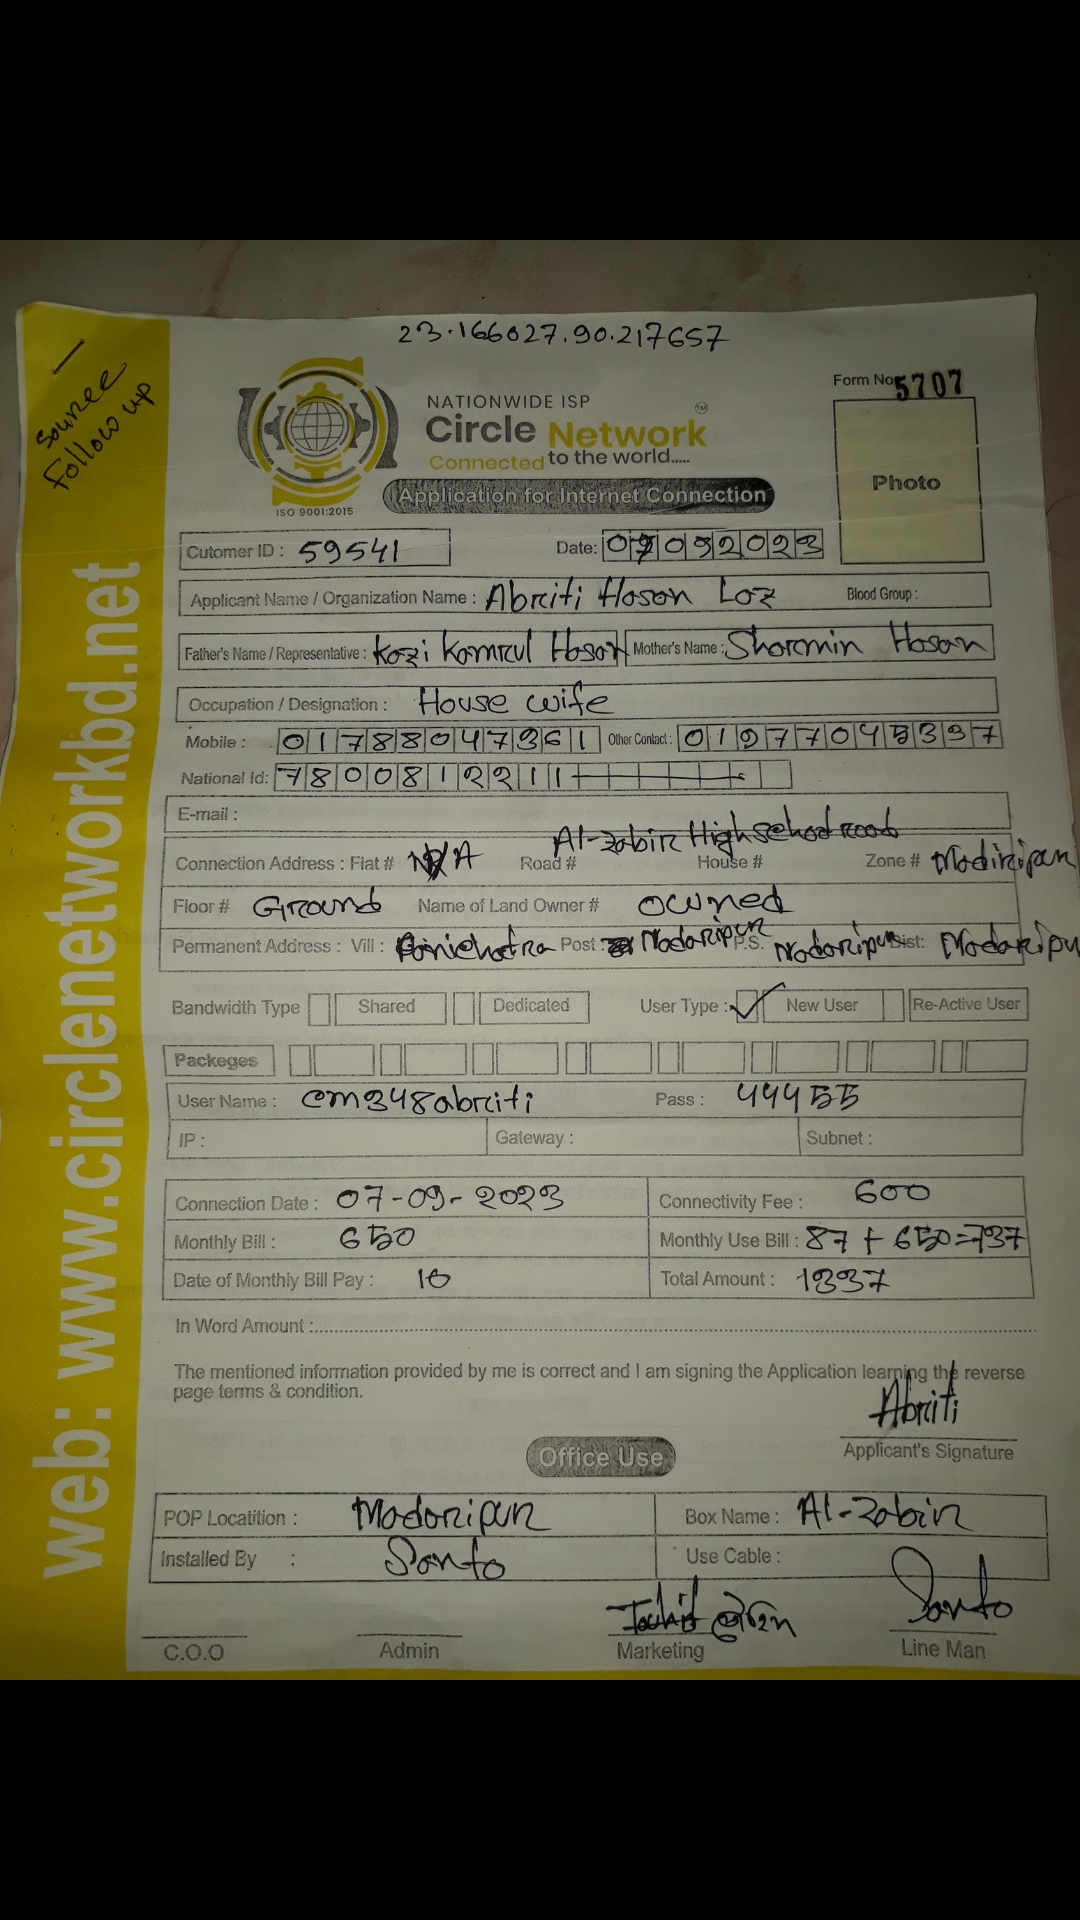 23.166027.90.217657
Source
Follow up
web: www.circlenetworkbd.net
NATIONWIDE ISP
Circle Network TM
Connected to the world.....
ISO 9001:2015
Application for Internet Connection
Form No 5707
Photo
Cutomer ID : 59541 Date: 07092023
Applicant Name / Organization Name : Abriti Hasan Loz Blood Group :
Father's Name / Representative : Kazi Kamrul Hasan Mother's Name : Sharmin Hasan
Occupation / Designation : House wife
Mobile : 01788047361 Other Contact : 01977045397
National Id: 7800812211
E-mail :
Al-zabir High school road
Connection Address : Flat # N/A Road # House # Zone # Madiripur
Floor # Ground Name of Land Owner # owned
Permanent Address : Vill : Panichatra Post : Madaripur P.S. Madaripur Dist: Madaripu
Bandwidth Type Shared Dedicated User Type : New User Re-Active User
Packeges
User Name : cm348abriti Pass : 444555
IP : Gateway : Subnet :
Connection Date : 07-09-2023 Connectivity Fee : 600
Monthly Bill : 650 Monthly Use Bill : 87 + 650=737
Date of Monthly Bill Pay : 10 Total Amount : 1337
In Word Amount :
The mentioned information provided by me is correct and I am signing the Application learning the reverse
page terms & condition.
Abriti
Applicant's Signature
Office Use
POP Locatition : Madaripur Box Name : Al-Zabir
Installed By : Santo Use Cable :
Santo
C.O.O Admin Marketing Line Man